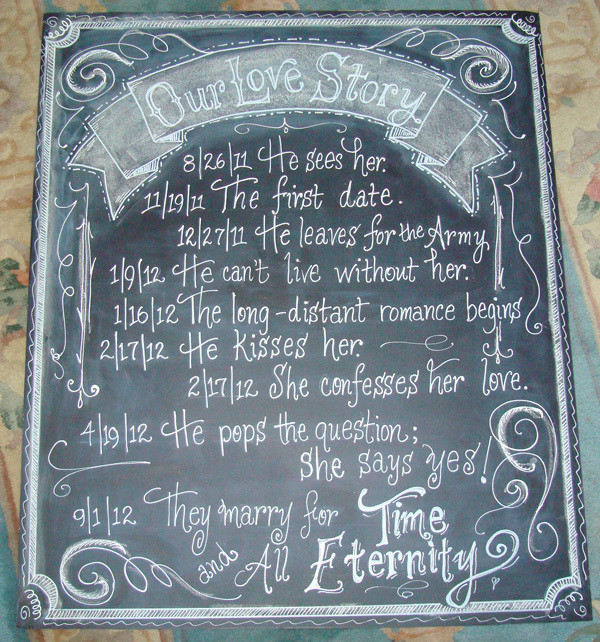 Our Love Story
8/26/11 He sees her.
11/19/11 The first date.
12/27/11 He leaves for the Army
1/9/12 He can't live without her.
1/16/12 The long-distant romance begins
2/17/12 He kisses her.
2/17/12 She confesses her love.
4/19/12 He pops the question;
She says yes!
9/1/12 They marry for Time
and All Eternity